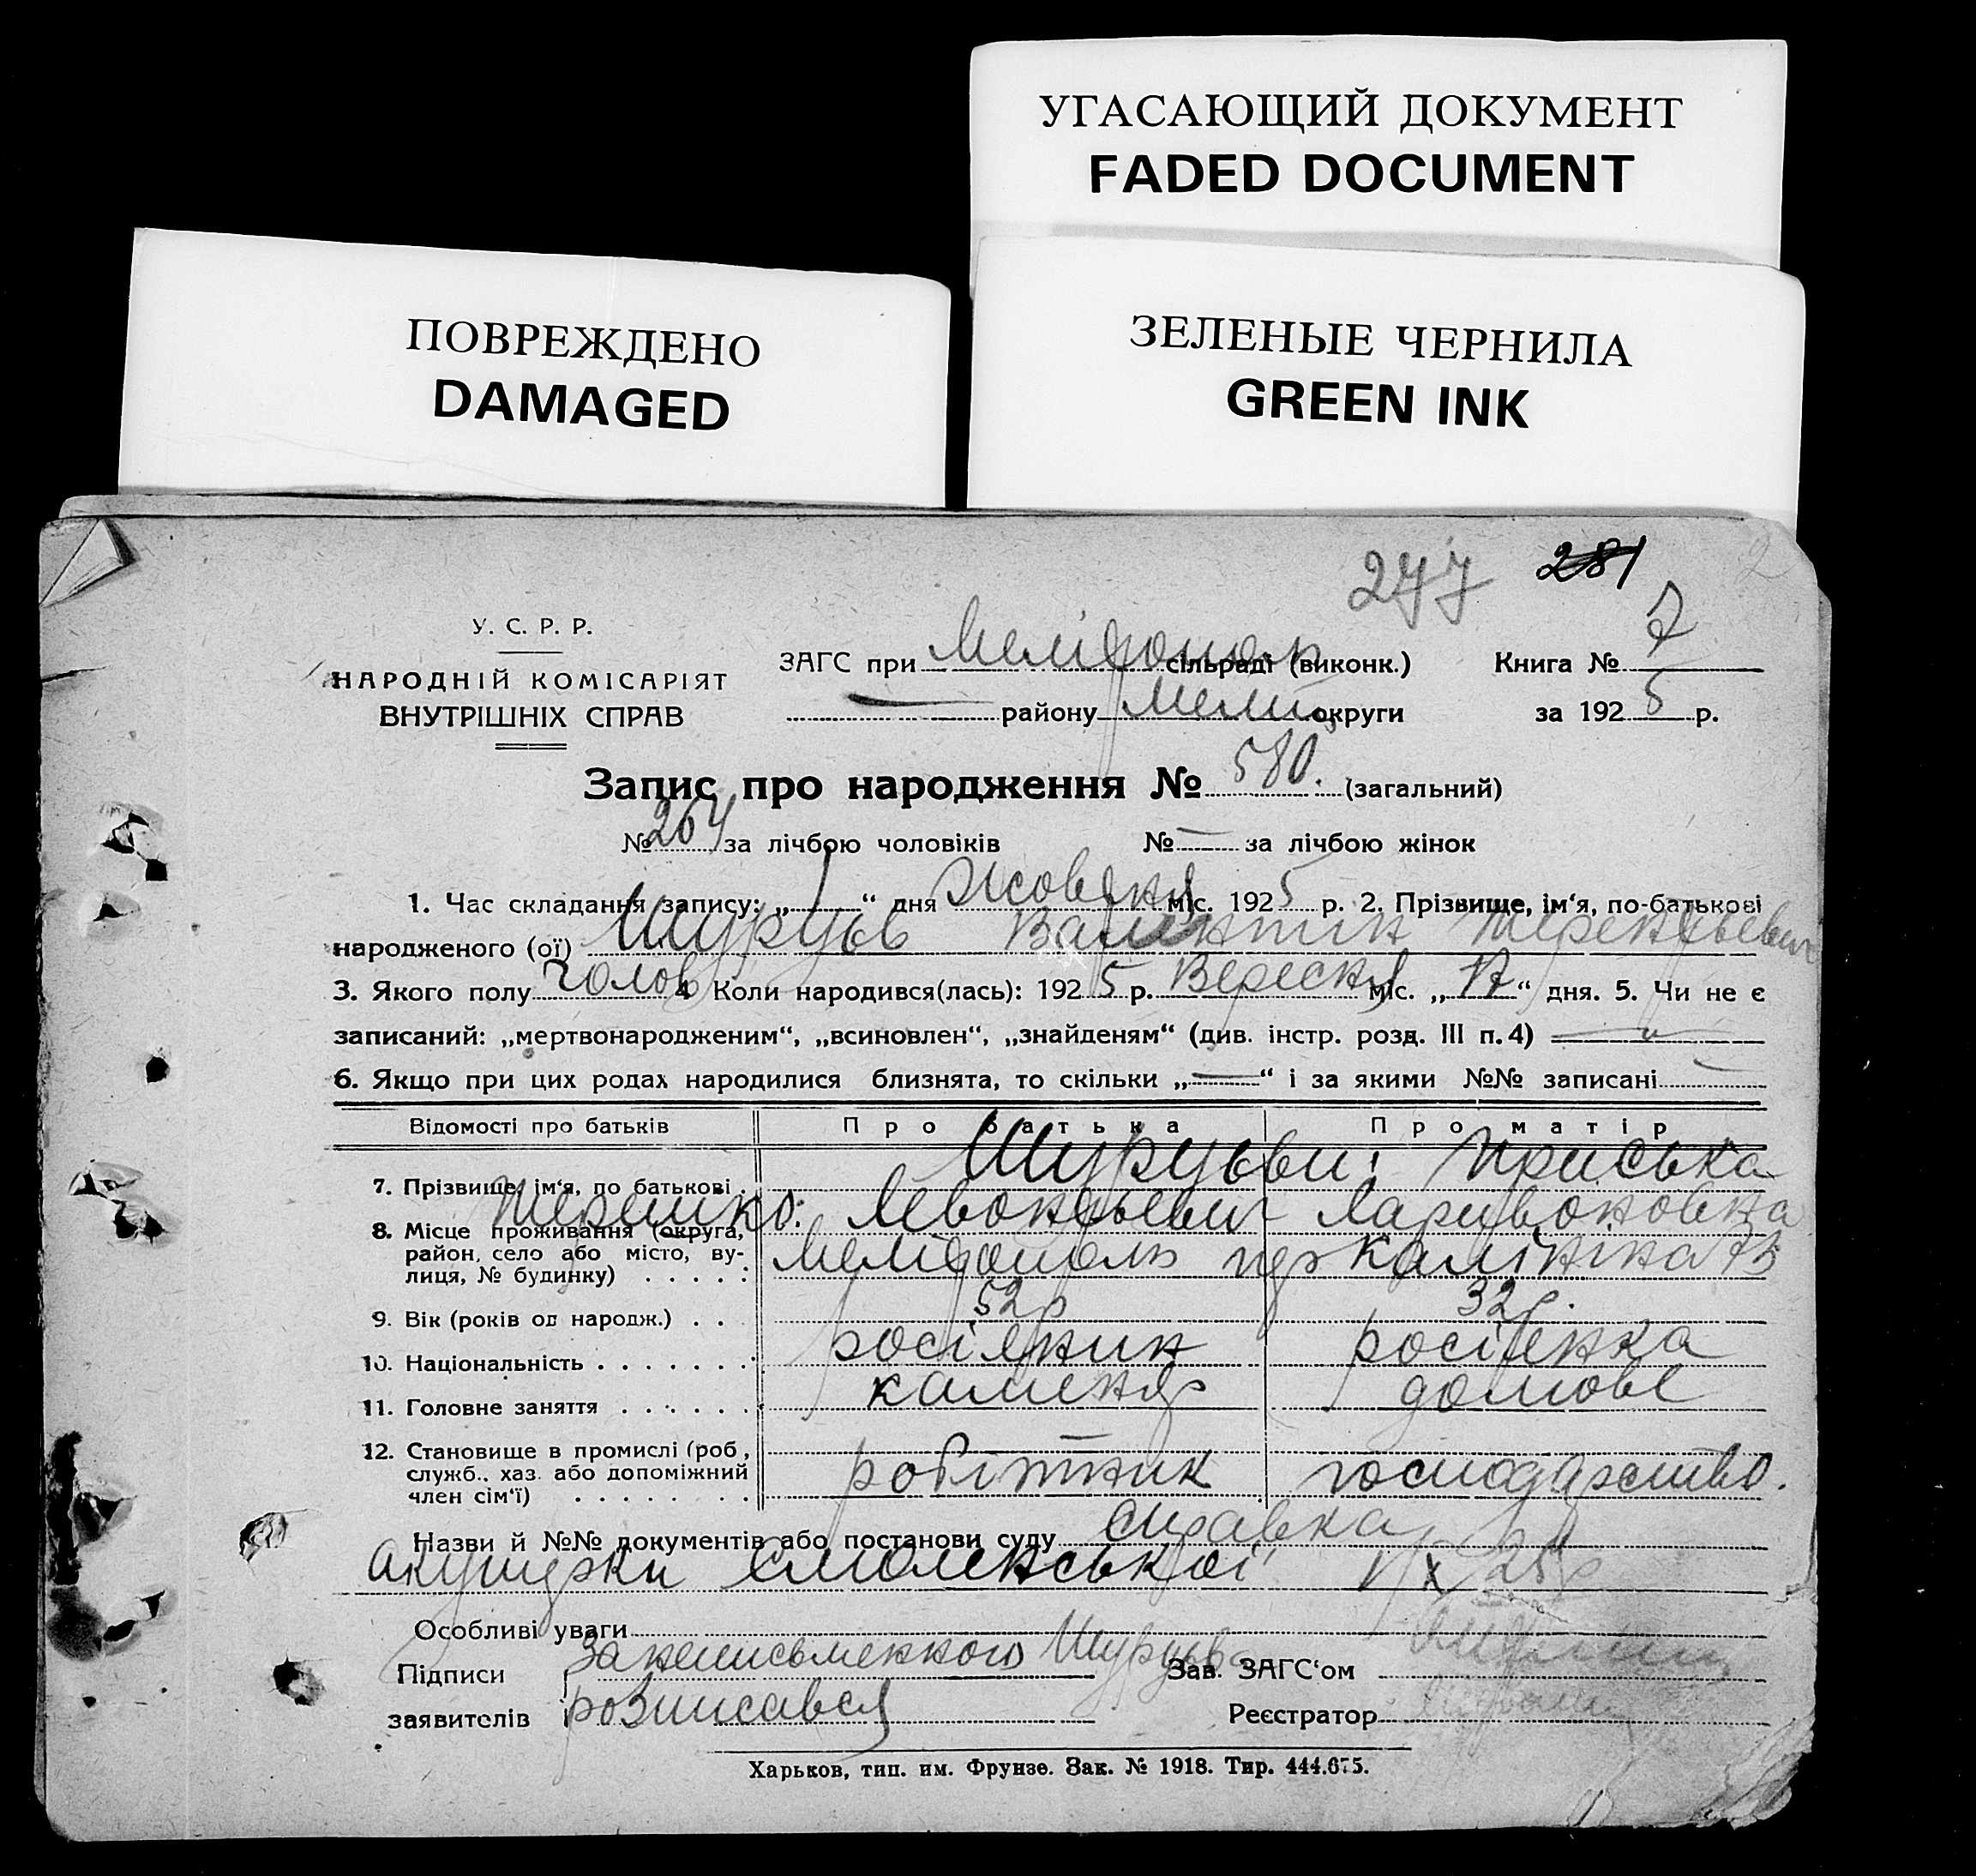 УГАСАЮЩИЙ ДОКУМЕНТ
FADED DOCUMENT
ПОВРЕЖДЕНО
DAMAGED
ЗЕЛЕНЫЕ ЧЕРНИЛА
GREEN INK
277 281 2
У. С. Р. Р.
НАРОДНІЙ КОМІСАРІЯТ
ВНУТРІШНІХ СПРАВ
ЗАГС при Мелітополь сільраді (виконк.) Книга № 7
— району Меліт округи за 1925 р.
Запис про народження № 580. (загальний)
№ 264 за лічбою чоловіків № — за лічбою жінок
1. Час складання запису: „1“ дня Жовтня міс. 1925 р. 2. Прізвище, ім‘я, по-батькові
народженого (ої) Шурузьв Валентин Терентьевич
3. Якого полу чолов 4 Коли народився(лась): 1925 р. Вересня міс. „17“ дня. 5. Чи не є
записаний: „мертвонародженим“, „всиновлен“, „знайденям“ (див. інстр. розд. III п. 4) —
6. Якщо при цих родах народилися близнята, то скільки „—“ і за якими №№ записані —
Відомості про батьків Про батька Про матір
7. Прізвище, ім‘я, по батькові
Терешко: Левонтьевич Ларивоновна
8. Місце проживання (округа,
район, село або місто, ву-
лиця, № будинку)
Мелітополь
9. Вік (років од народж.) 52р 32р.
10. Національність росіянин росіянка
11. Головне заняття каменяр домове
12. Становище в промислі (роб.,
служб., хаз. або допоміжний
член сім‘ї)
робітник господарство.
Назви й №№ документів або постанови суду справка
акушерки Смоленської 1/X 25р
Особливі уваги
Підписи За неписьменного Зав. ЗАГС‘ом
заявителів розписався Реєстратор
Харьков, тип. им. Фрунзе. Зак. № 1918. Тир. 444.675.